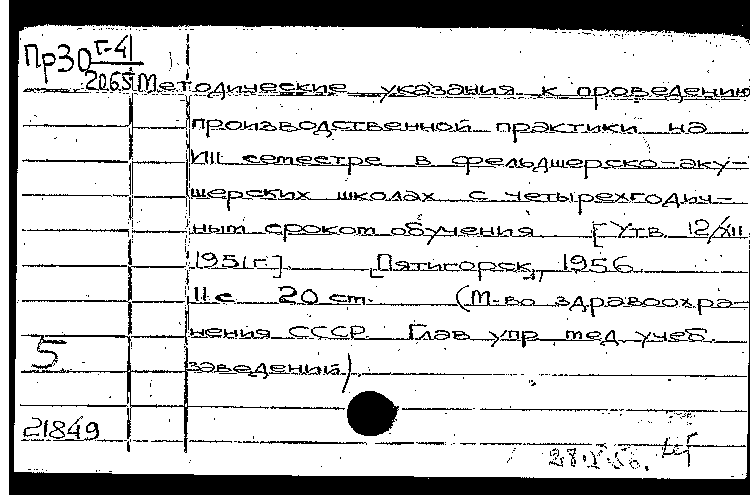 Пр30 Г-4
2065 Методические указания к проведению
производственной практики на
VIII семестре в фельдшерско-аку-
шерских школах с четырехгодич-
ным сроком обучения [Утв. 12/XII
1951г.] [Пятигорск], 1956.
11 с 20 cm. (М-во здравоохра-
нения СССР. Глав. упр. мед. учеб.
5
заведений).
21849